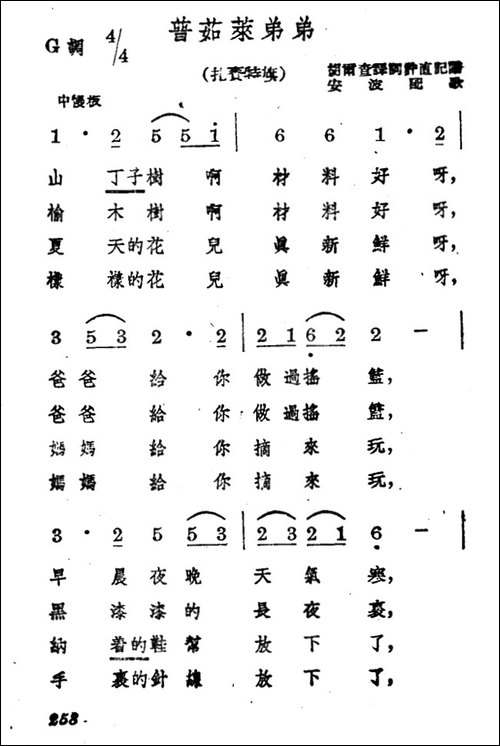 普茹萊弟弟
G調 4/4
(扎賚特族)
安波配歌
中慢板
1 · 2 5 5 1 | 6 6 1 · 2 |
山 丁子樹 啊 材 料 好 呀,
榆 木 樹 啊 材 料 好 呀,
夏 天的花 兒 眞 新 鮮 呀,
樣 樣的花 兒 眞 新 鮮 呀,
3 5 3 2 · 2 | 2 1 6 2 2 – |
爸爸 給 你 做過搖 籃,
爸爸 給 你 做過搖 籃,
媽媽 給 你 摘 來 玩,
媽媽 給 你 摘 來 玩,
3 · 2 5 5 3 | 2 3 2 1 6 – |
早 晨 夜 晚 天 氣 寒,
黑 漆 漆 的 長 夜 裏,
納 着的鞋 幫 放 下 了,
手 裏的針 線 放 下 了,
253